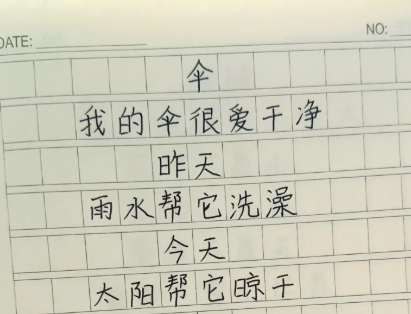 DATE:
NO:
伞
我的伞很爱干净
昨天
雨水帮它洗澡
今天
太阳帮它晾干